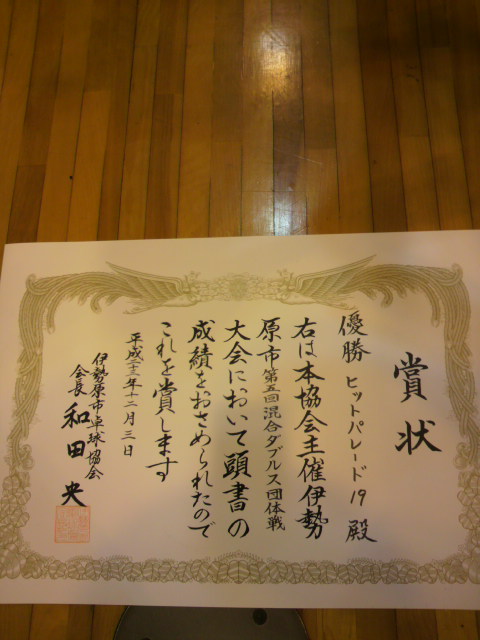 賞状
優勝 ヒットパレード19 殿
右は本協会主催伊勢
原市第五回混合ダブルス団体戦
大会において頭書の
成績をおさめられたので
これを賞します
平成二十三年十二月三日
伊勢原市卓球協会
会長 和田 央